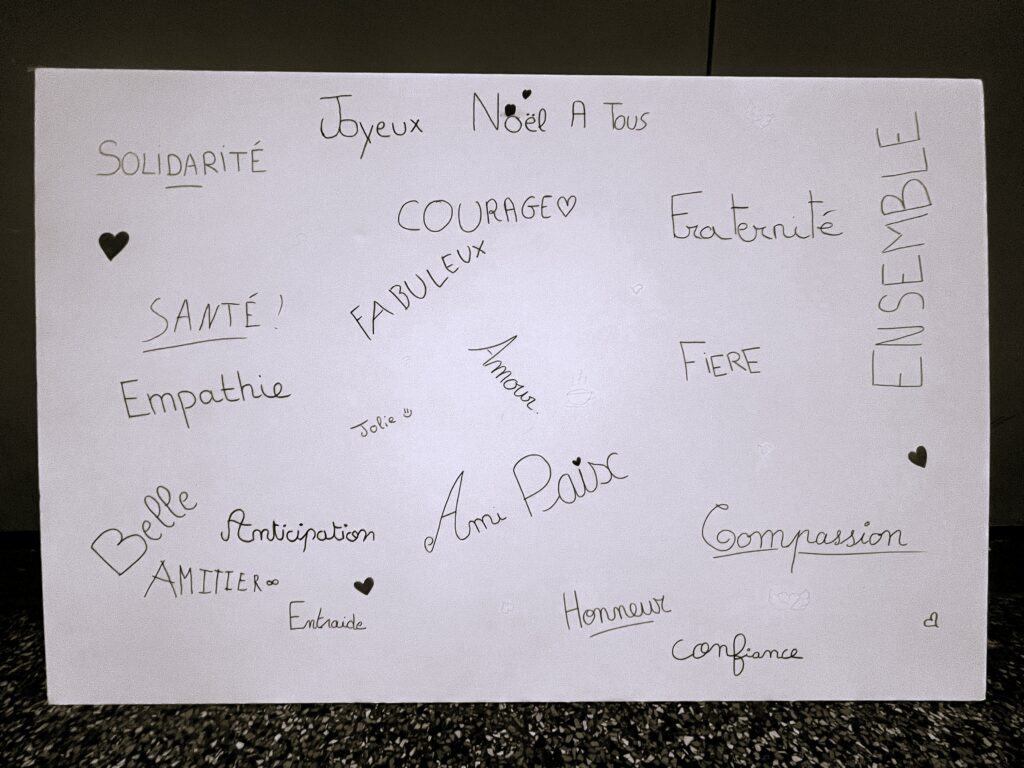 Joyeux Noël A Tous
SOLIDARITÉ
COURAGE
Fraternité
ENSEMBLE
FABULEUX
SANTÉ !
Amour.
FIERE
Empathie
Jolie
Ami Paix
Belle
Anticipation
Compassion
AMITIER ∞
Entraide
Honneur
confiance